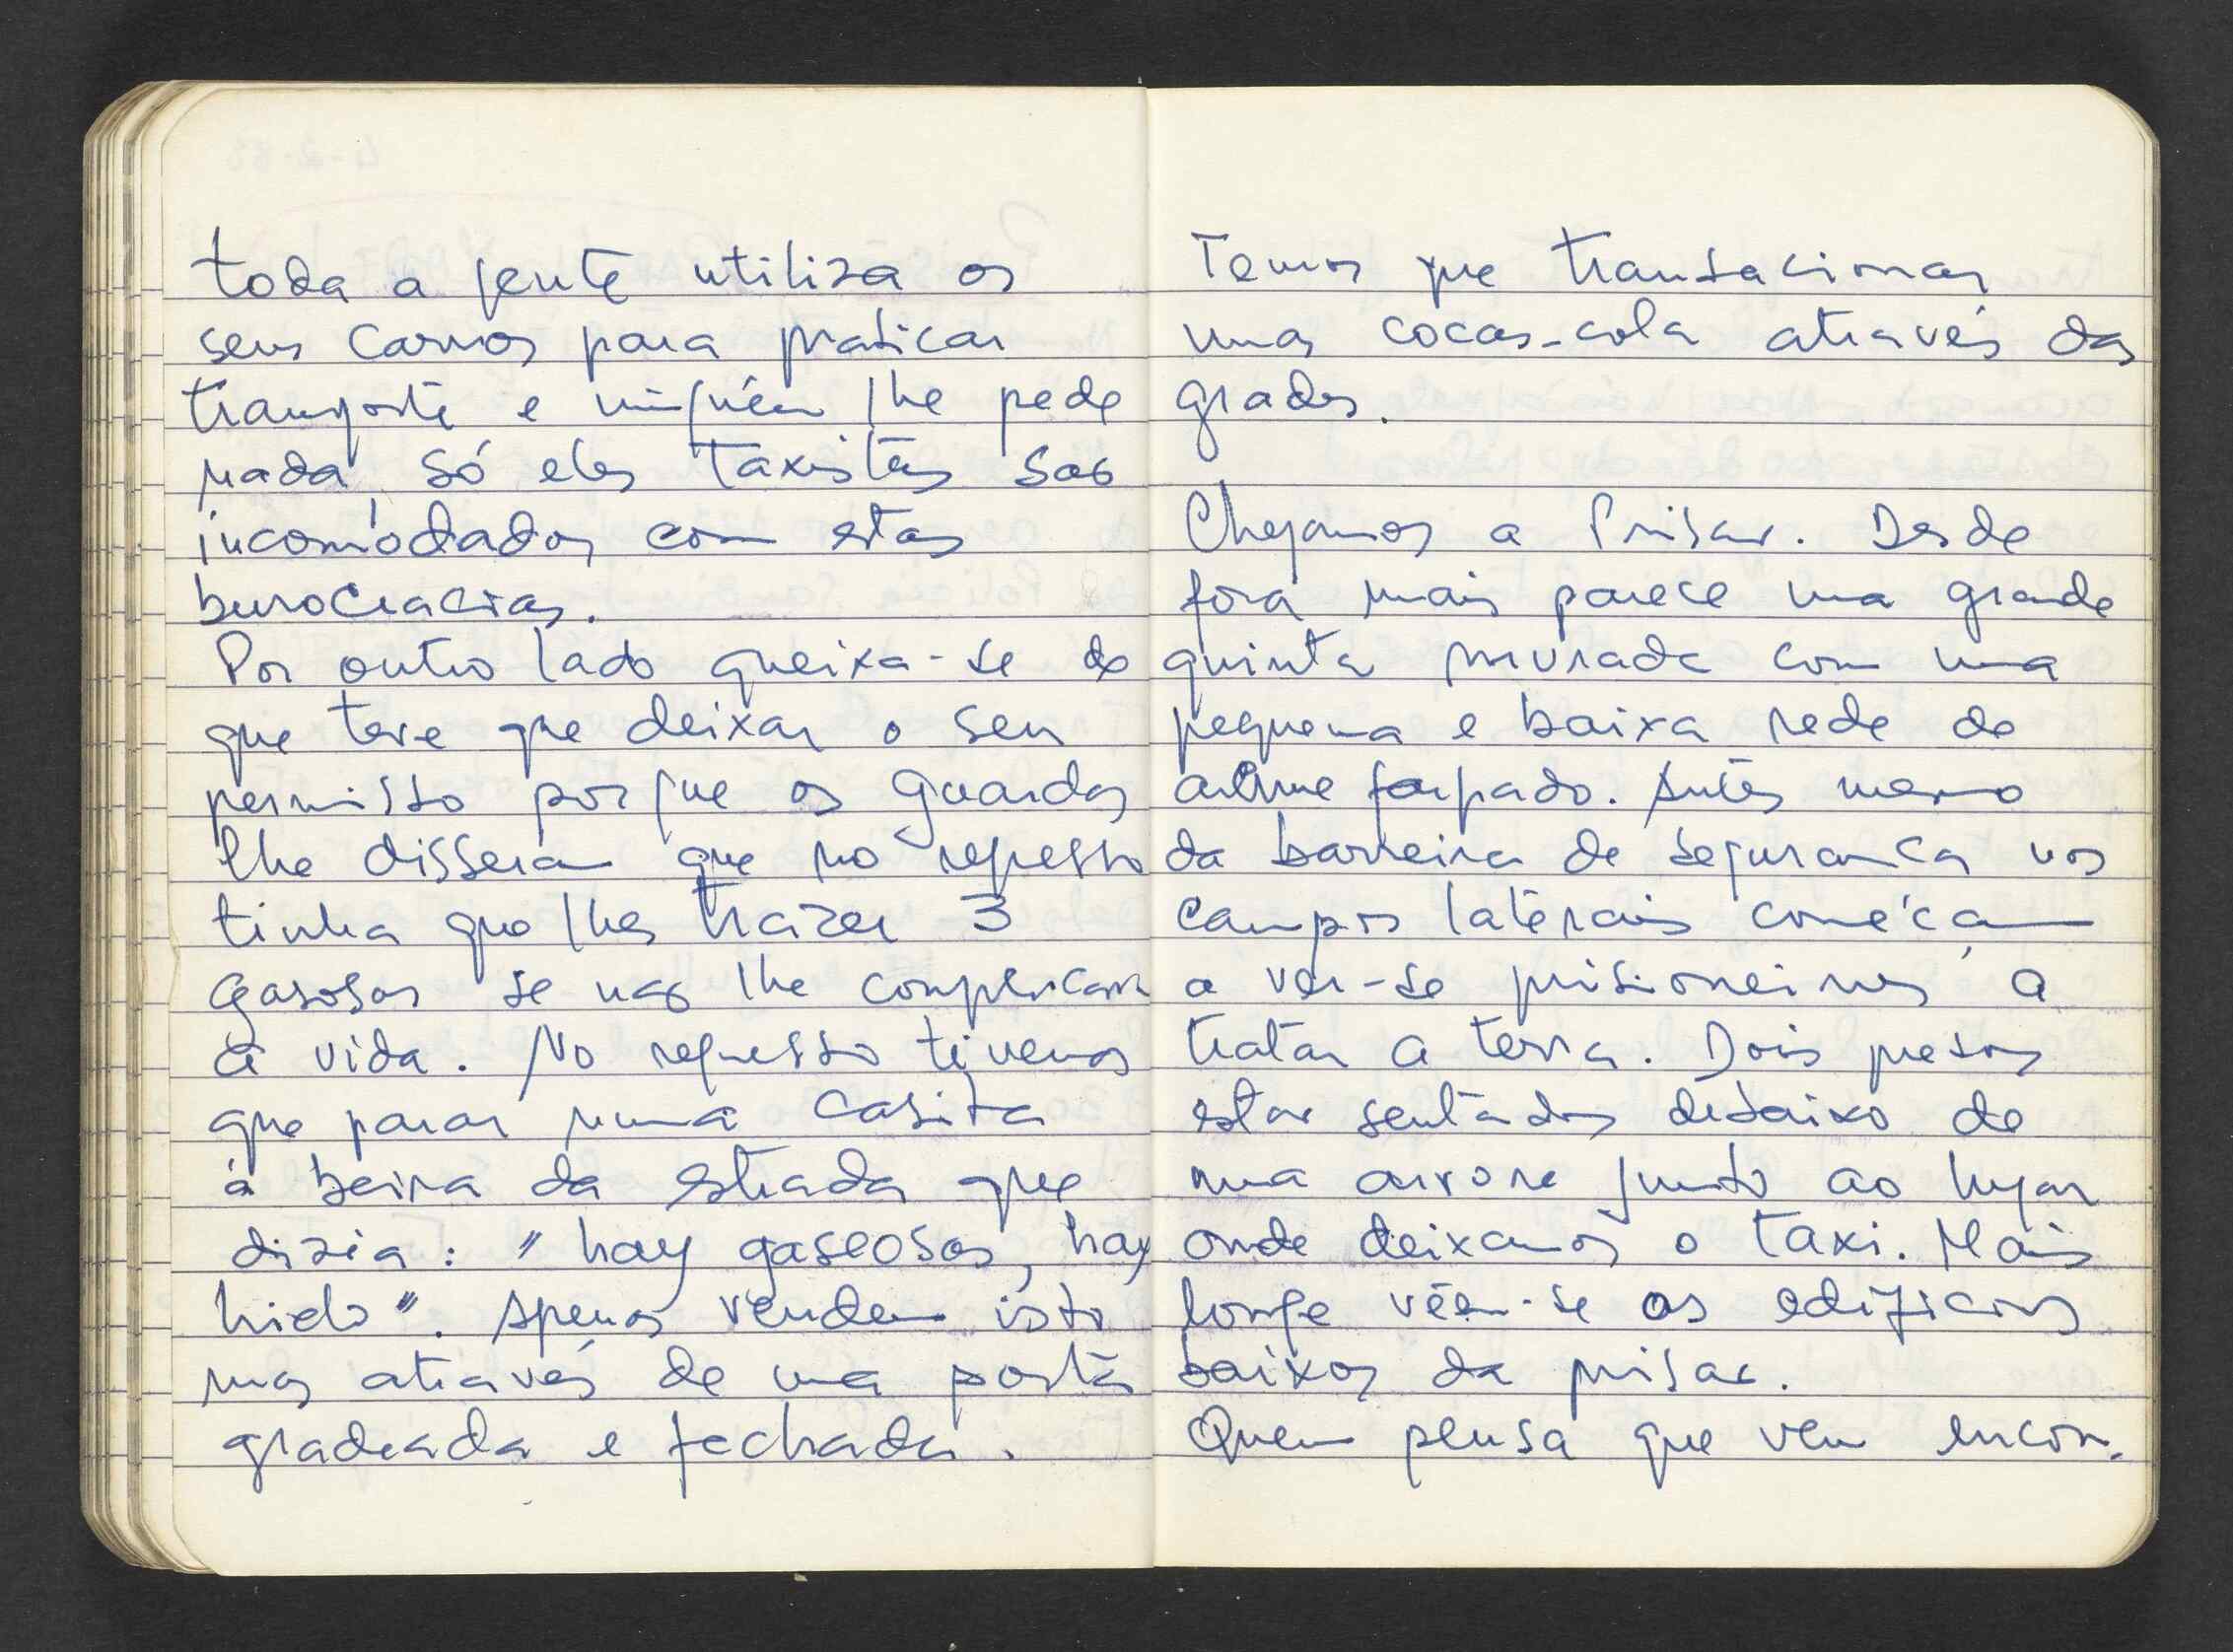 toda a gente utilisa os
seus carros para praticar
transporte e ninguém lhe pede
nada, só eles taxistas sao
incomodados com estas
burocracias.
Por outro lado queixa-se de
que teve que deixar o seu
permisso porque os guardas
lhe disseram que no regresso
tinha que lhes trazer 3
gasosas se nao lhe complicam
a vida. No regresso tivemos
que parar numa casita
à beira da estrada que
dizia: "hay gaseosas, hay
hielo". Apenas vendem isto
mas através de uma porta
gradeada e fechada.
Temos que transacionar
umas cocas-cola através das
grades.
Chegamos a Prisao. Desde
fora mais parece uma grande
quinta murada com uma
pequena e baixa rede de
arame farpado. Antes mesmo
da barreira de segurança nos
campos laterais começam
a ver-se prisioneiros a
tratar a terra. Dois presos
estao sentados debaixo de
uma arvore junto ao lugar
onde deixamos o taxi. Mais
longe vêem-se os edificios
baixos da prisao.
Quem pensa que vem encon-